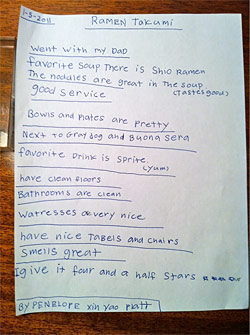 1-5-2011
RAMEN TAKUMI
went with my DAD
favorite soup There is Shio Ramen
The noddles are great in the soup
(Tastes good)
good Service
Bowls and Plates are pretty
Next to Gray Dog and Buona Sera
favorite Drink is Sprite.
(yum)
have clean floors
Bathrooms are clean
Watresses are very nice
have nice Tabels and chairs
Smells great
I give it four and a half Stars
BY PENELOPE xin yao Platt